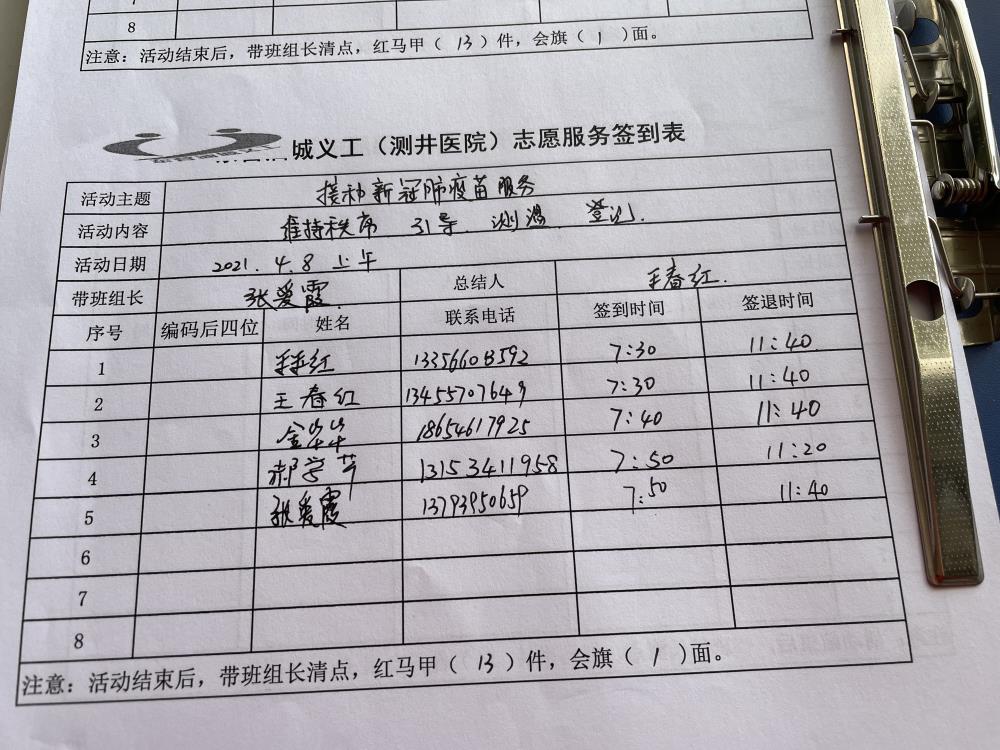 8
注意：活动结束后，带班组长清点，红马甲（ 13 ）件，会旗（ 1 ）面。
城义工（测井医院）志愿服务签到表
活动主题 接种新冠肺疫苗服务
活动内容 维持秩序 引导 测温 登记.
活动日期 2021.4.8 上午
带班组长 张爱霞. 总结人 王春红.
序号 编码后四位 姓名 联系电话 签到时间 签退时间
1 7:30 11:40
2 王春红 13455707649 7:30 11:40
3 18654617925 7:40 11:40
4 郝学芹 13153411958 7:50 11:20
5 张爱霞 13793950659 7:50 11:40
6
7
8
注意：活动结束后，带班组长清点，红马甲（ 13 ）件，会旗（ 1 ）面。